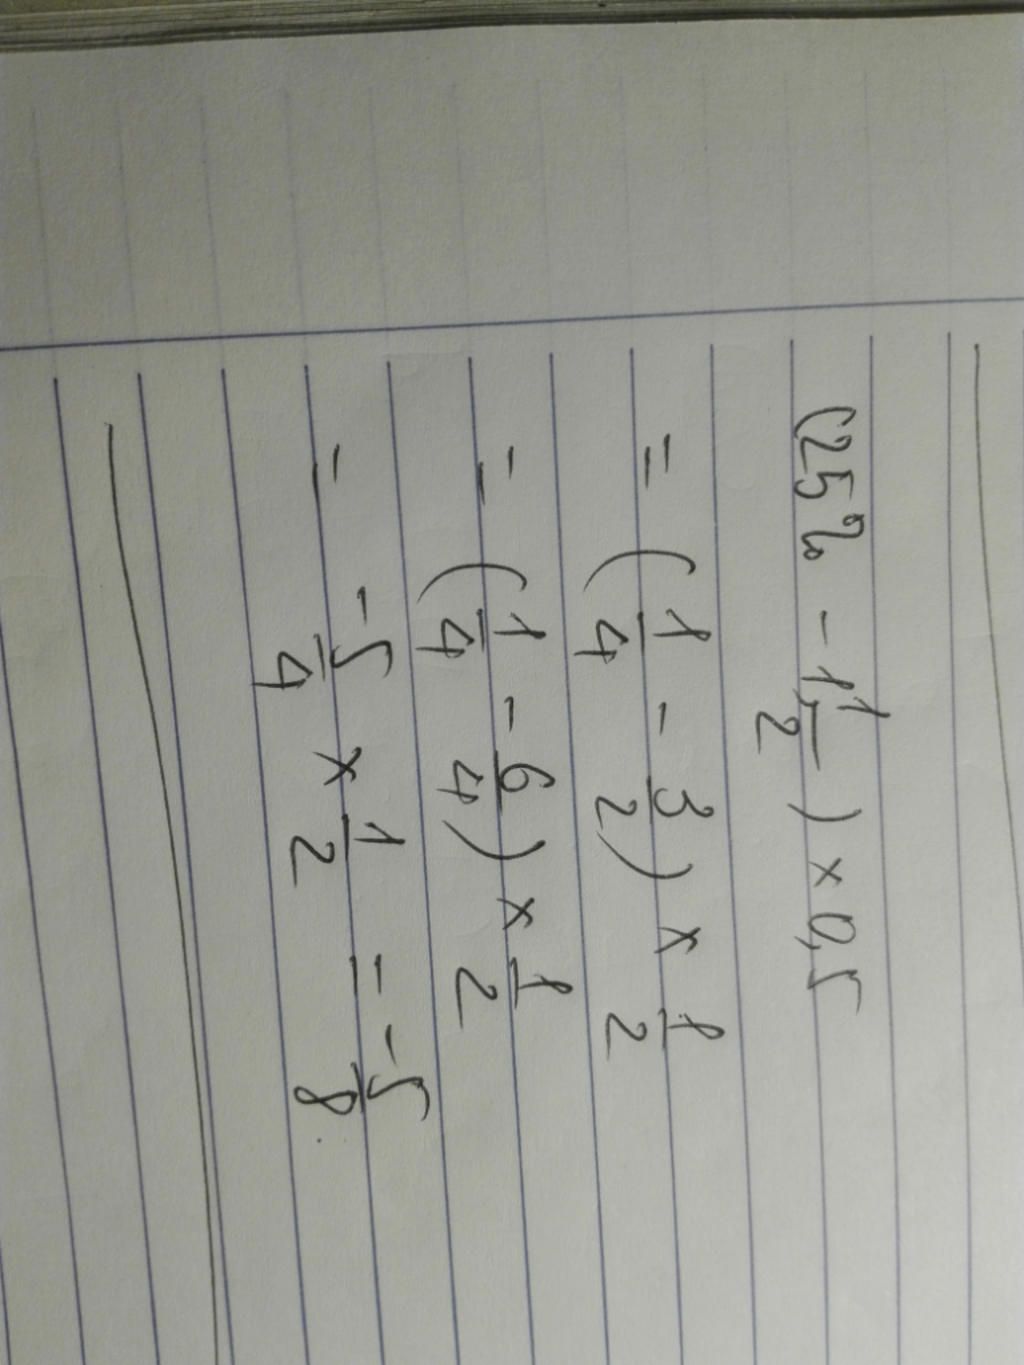 (25% - 1 1/2) × 0,5
= (1/4 - 3/2) × 1/2
= (1/4 - 6/4) × 1/2
= -5/4 × 1/2 = -5/8.